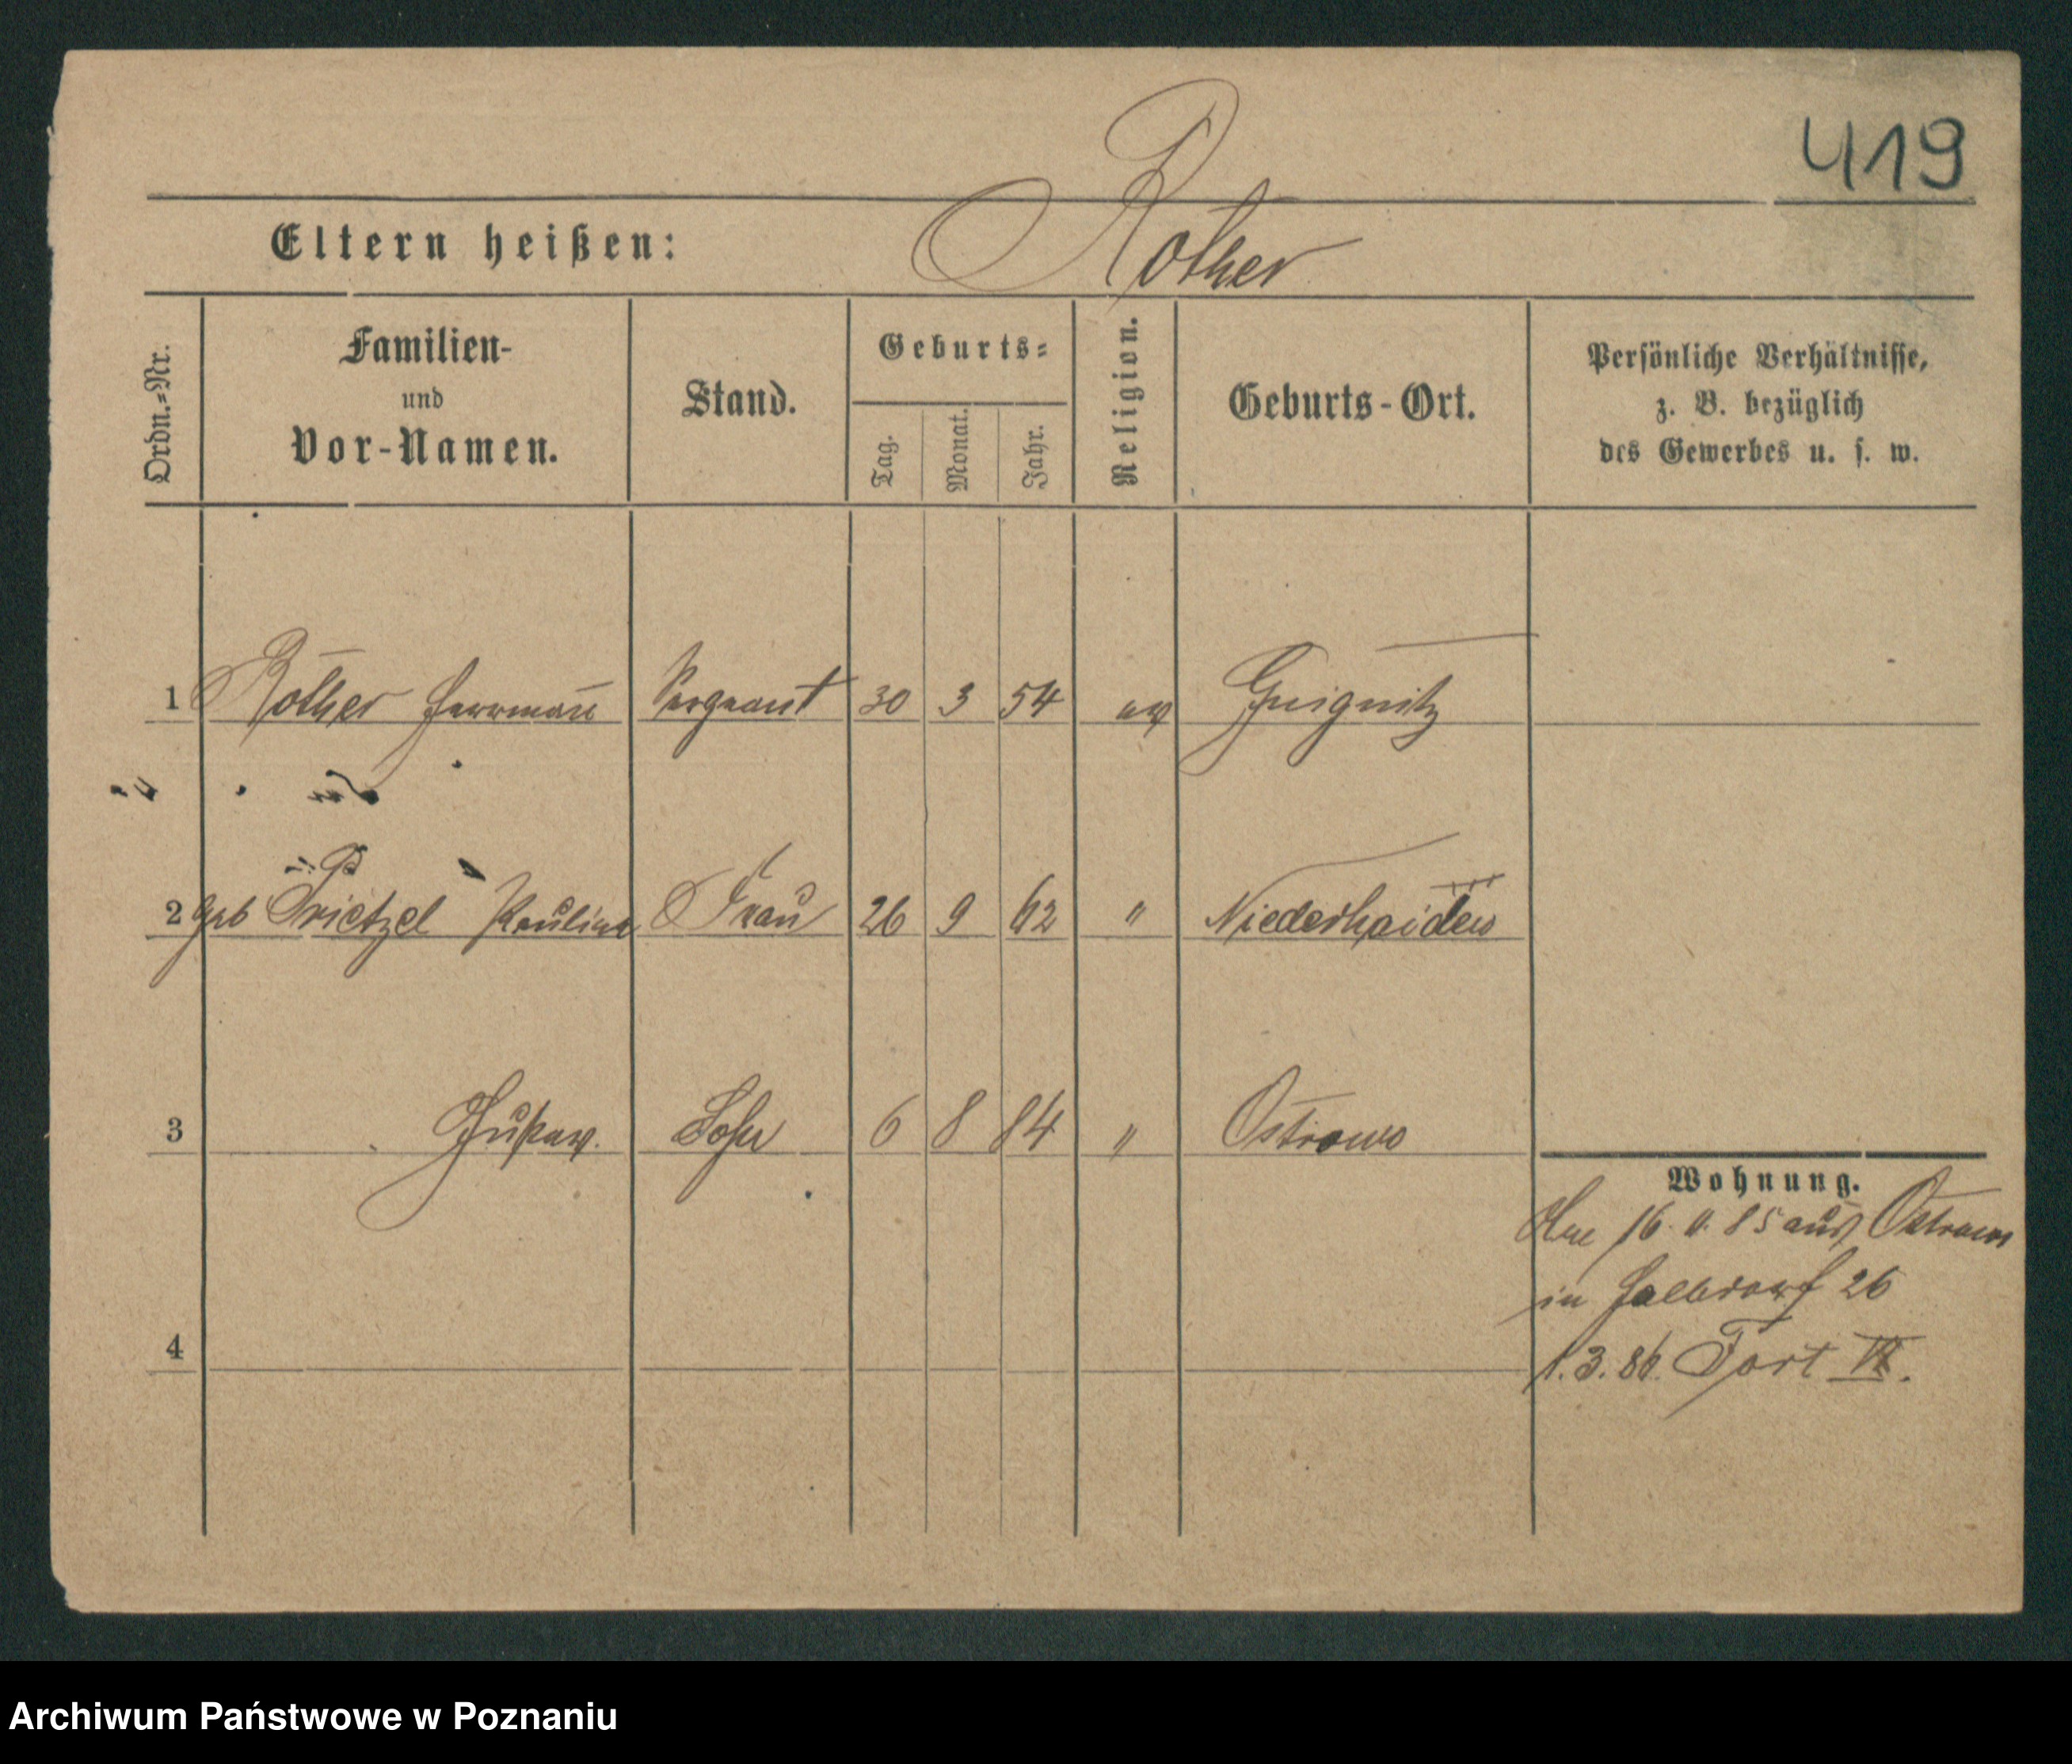 419
Eltern heißen: Rother
Ordn.-Nr.
Familien-
und
Vor-Namen.
Stand.
Geburts-
Tag.
Monat.
Jahr.
Religion.
Geburts-Ort.
Persönliche Verhältnisse,
z. B. bezüglich
des Gewerbes u. s. w.
1 Rother Herrmann Sergeant 30 3 54 ev
2 geb Frietzel Pauline Frau 26 9 62 "
3 Gustav. Sohn 6 8 84 " Ostrowo
Wohnung.
16. 85 aus Ostrowo
in Halbdorf 26
4
1.3.86. Fort
Archiwum Państwowe w Poznaniu